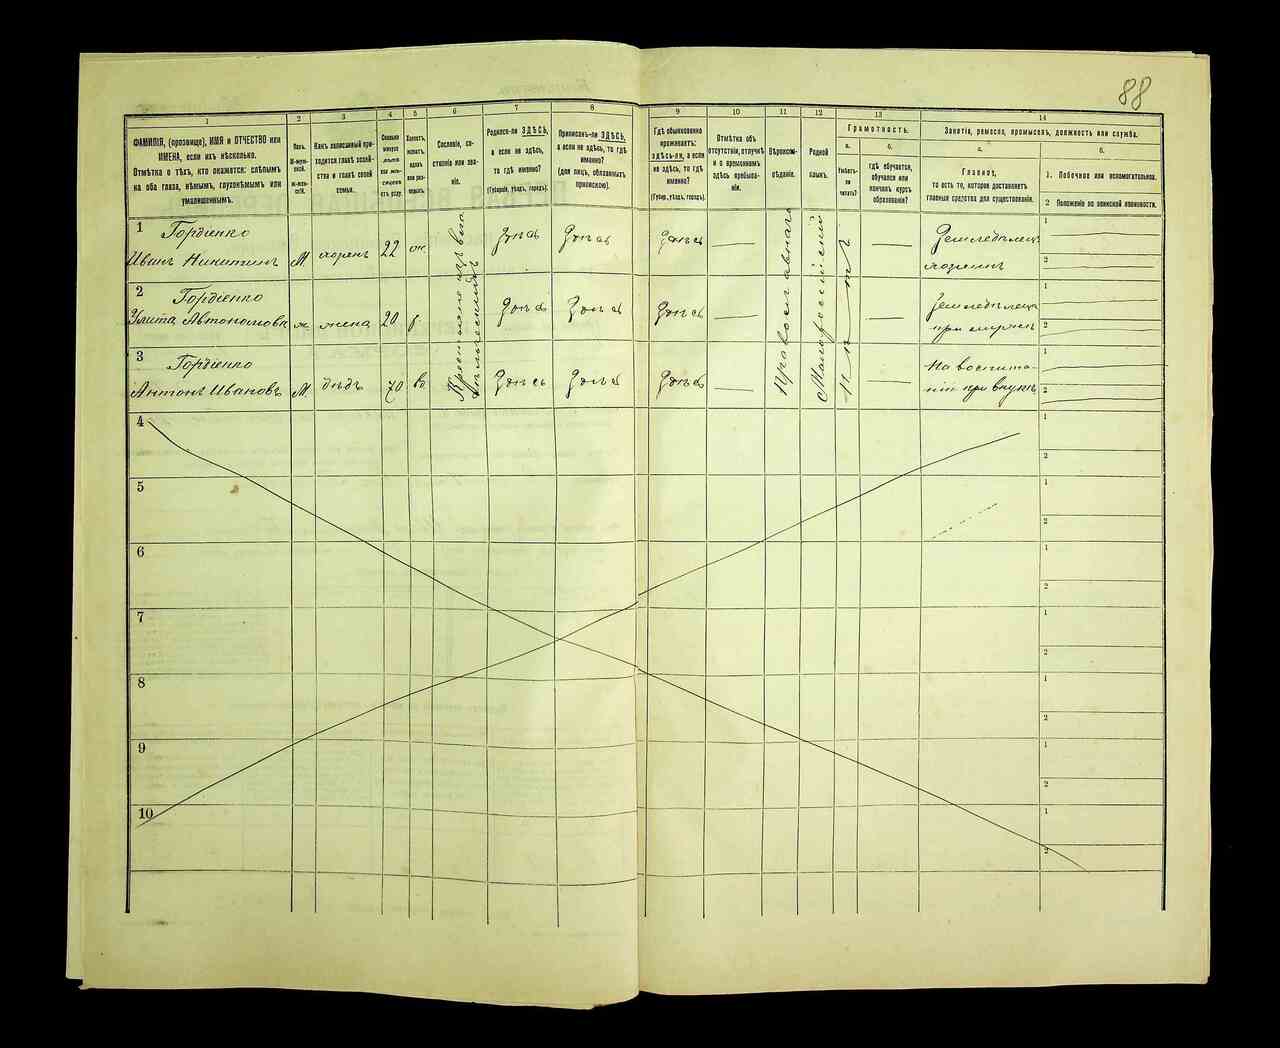 88
1
2
3
4
5
6
7
8
9
10
11
12
13
14
ФАМИЛІЯ, (прозвище), ИМЯ и ОТЧЕСТВО или
ИМЕНА, если ихъ нѣсколько.
Отмѣтка о тѣхъ, кто окажется: слѣпымъ
на оба глаза, нѣмымъ, глухонѣмымъ или
умалишеннымъ.
Полъ.
М-муж-
ской.
ж-жен-
скій.
Какъ записанный при-
ходится главѣ хозяй-
ства и главѣ своей
семьи.
Сколько
минуло
лѣтъ
или мѣ-
сяцевъ
отъ роду.
Холостъ,
женатъ,
вдовъ
или раз-
веденъ.
Сословіе, со-
стояніе или зва-
ніе.
Родился-ли ЗДѢСЬ,
а если не здѣсь,
то гдѣ именно?
(Губернія, уѣздъ, городъ).
Приписанъ-ли ЗДѢСЬ,
а если не здѣсь, то гдѣ
именно?
(для лицъ, обязанныхъ
припискою).
Гдѣ обыкновенно
проживаетъ:
здѣсь-ли, а если
не здѣсь, то гдѣ
именно?
(Губерн., уѣздъ, городъ).
Отмѣтка объ
отсутствіи, отлучкѣ
и о временномъ
здѣсь пребыва-
ніи.
Вѣроиспо-
вѣданіе.
Родной
языкъ.
Грамотность.
а.
Умѣетъ-
ли
читать?
б.
гдѣ обучается,
обучался или
кончилъ курсъ
образованія?
Занятія, ремесло, промыселъ, должность или служба.
а.
Главное,
то есть то, которое доставляетъ
главныя средства для существованія.
б.
1. Побочное или вспомогательное.
2 Положеніе по воинской повинности.
1 Гордіенко
Иванъ Никитинъ М хозяинъ 22 ж здѣсь здѣсь здѣсь — — Земледѣлецъ
хозяинъ
2 Гордіенко
Улита Автономовна ж жена 20 з здѣсь здѣсь здѣсь — — Земледѣлецъ
при мужѣ
3 Гордіенко
Антонъ Ивановъ М. дѣдъ 70 вд здѣсь здѣсь здѣсь — — На воспита-
ніи при внукѣ
Крестьяне изъ
Православнаго
Малороссійскій
нѣтъ
4
5
6
7
8
9
10
1
2
1
2
1
2
1
2
1
2
1
2
1
2
1
2
1
2
1
2